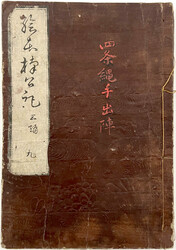 四条縄手出陣
繪本楠公記 三編 九